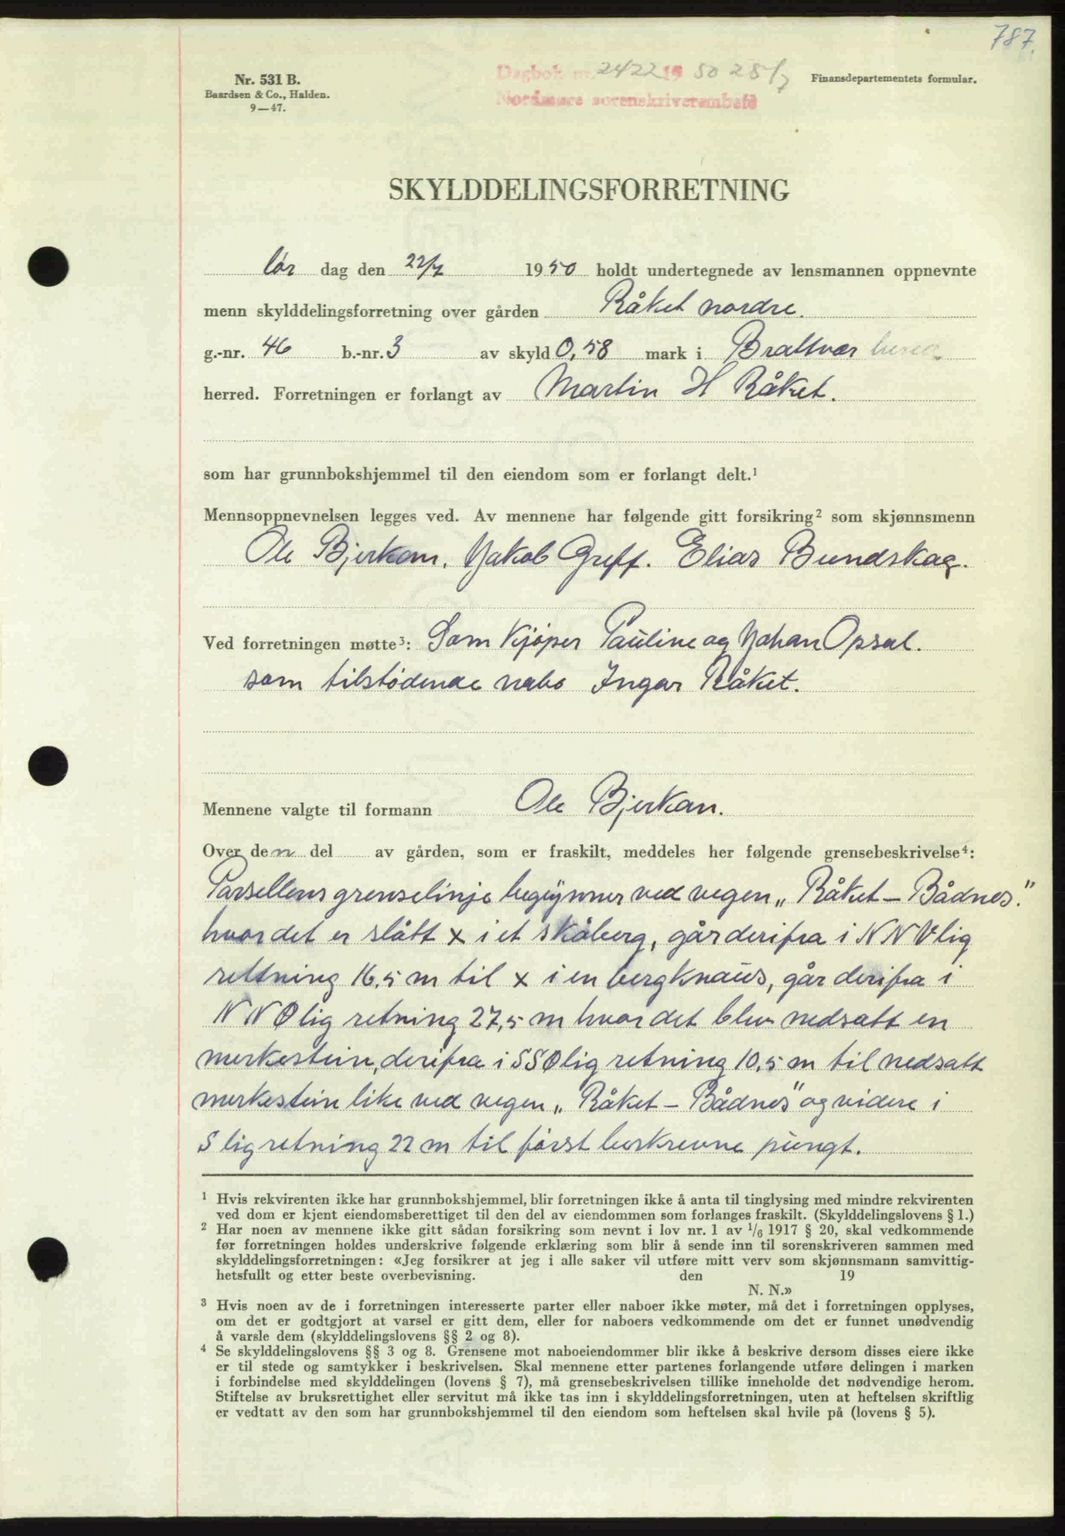 787.
Nr. 531 B.
Baardsen & Co., Halden.
9—47.
Dagbok nr. 2422 19 50 28/7
Nordmøre sorenskriverembede
Finansdepartementets formular.
SKYLDDELINGSFORRETNING
lør dag den 22/7 1950 holdt undertegnede av lensmannen oppnevnte
menn skylddelingsforretning over gården Råket nordre.
g.-nr. 46 b.-nr. 3 av skyld 0,58 mark i Brattvær
herred. Forretningen er forlangt av Martin H Råket.
som har grunnbokshjemmel til den eiendom som er forlangt delt.¹
Mennsoppnevnelsen legges ved. Av mennene har følgende gitt forsikring² som skjønnsmenn
Ole Bjerkan. Jakob Greff. Elias Bundskag.
Ved forretningen møtte³: Som Kjøper Pauline og Johan Opsal.
som tilstødende nabo Ingar Råket.
Mennene valgte til formann Ole Bjerkan.
Over den del av gården, som er fraskilt, meddeles her følgende grensebeskrivelse⁴:
Parsellens grenselinje begynner ved vegen „Råket – Bådnes."
hvor det er slått x i et skåberg, går derifra i NNVlig
rettning 16,5 m til x i en bergknaus, går derifra i
NNØlig retning 27,5 m hvor det blev nedsatt en
merkestein, derifra i SSØlig retning 10,5 m til nedsatt
merkestein like ved vegen „Råket – Bådnes" og videre i
Slig retning 22 m til først beskrevne pungt.
¹ Hvis rekvirenten ikke har grunnbokshjemmel, blir forretningen ikke å anta til tinglysing med mindre rekvirenten
ved dom er kjent eiendomsberettiget til den del av eiendommen som forlanges fraskilt. (Skylddelingslovens § 1.)
² Har noen av mennene ikke gitt sådan forsikring som nevnt i lov nr. 1 av 1/6 1917 § 20, skal vedkommende
før forretningen holdes underskrive følgende erklæring som blir å sende inn til sorenskriveren sammen med
skylddelingsforretningen: «Jeg forsikrer at jeg i alle saker vil utføre mitt verv som skjønnsmann samvittig-
hetsfullt og etter beste overbevisning. den 19
N. N.»
³ Hvis noen av de i forretningen interesserte parter eller naboer ikke møter, må det i forretningen opplyses,
om det er godtgjort at varsel er gitt dem, eller for naboers vedkommende om det er funnet unødvendig
å varsle dem (skylddelingslovens §§ 2 og 8).
⁴ Se skylddelingslovens §§ 3 og 8. Grensene mot naboeiendommer blir ikke å beskrive dersom disses eiere ikke
er til stede og samtykker i beskrivelsen. Skal mennene etter partenes forlangende utføre delingen i marken
i forbindelse med skylddelingen (lovens § 7), må grensebeskrivelsen tillike inneholde det nødvendige herom.
Stiftelse av bruksrettighet eller servitut må ikke tas inn i skylddelingsforretningen, uten at heftelsen skriftlig
er vedtatt av den som har grunnbokshjemmel til den eiendom som heftelsen skal hvile på (lovens § 5).